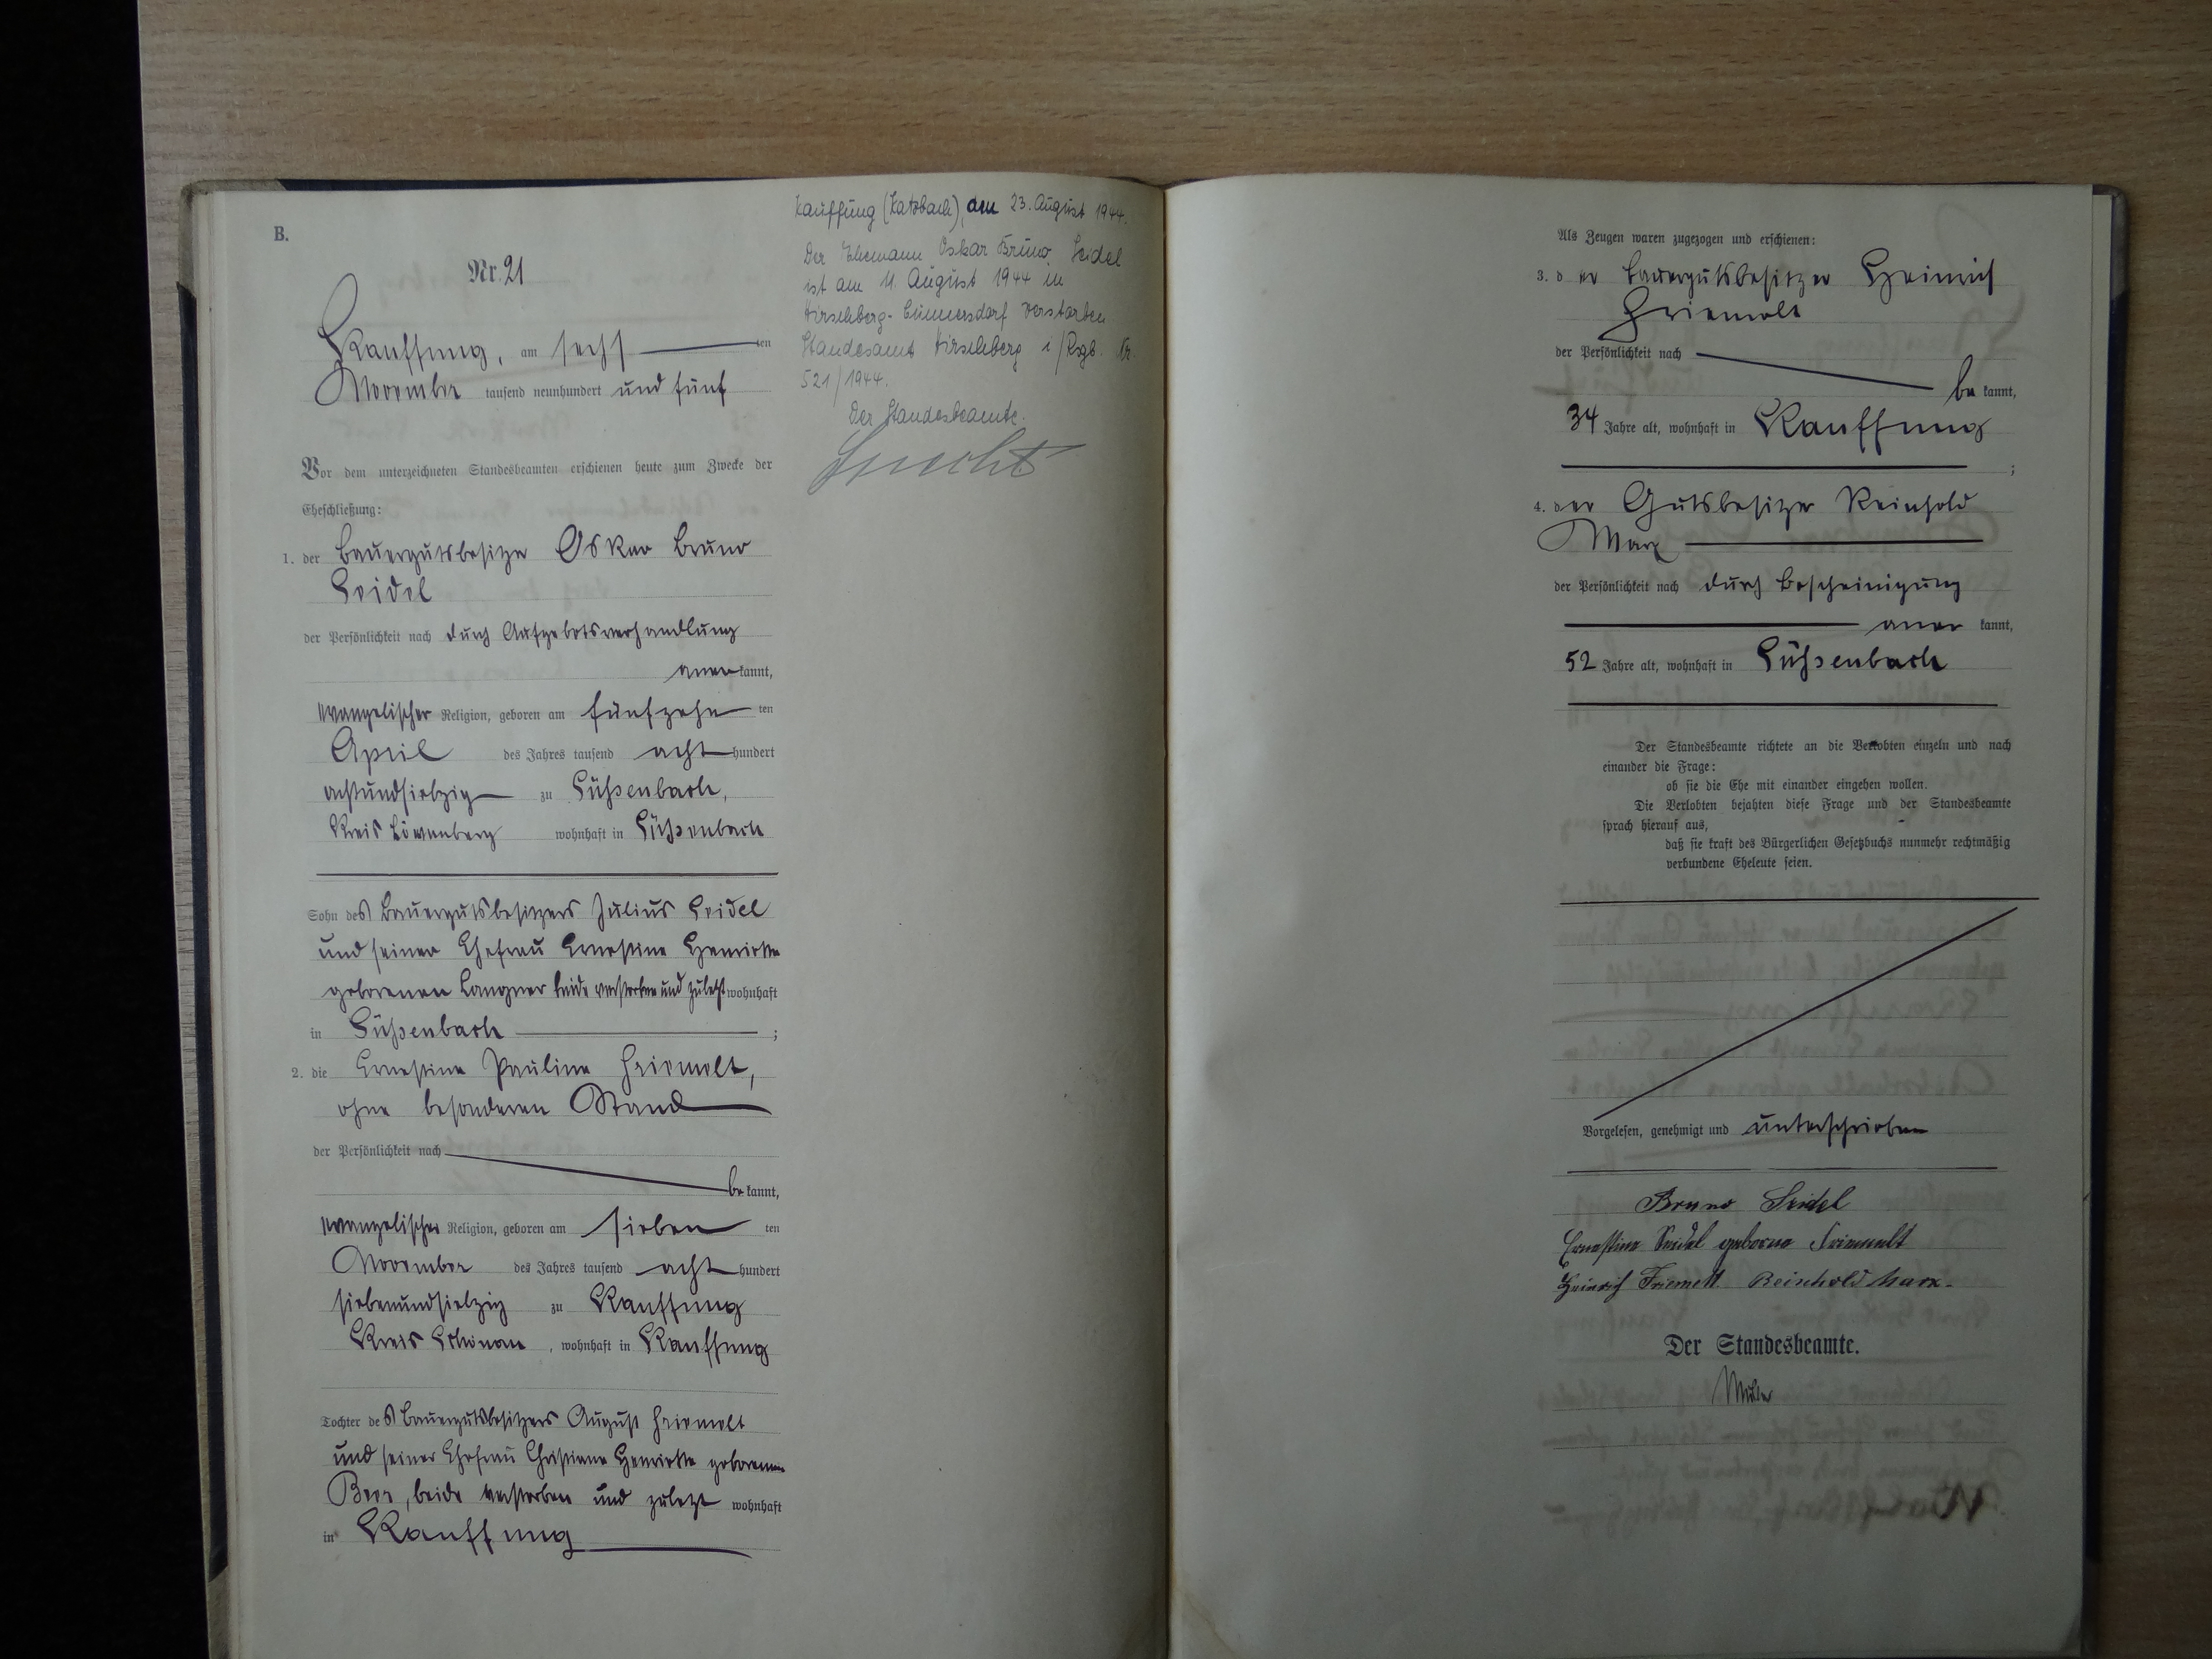 B.
Nr. 21
Kauffung, am sechsten
November tausend neunhundert und fünf
Vor dem unterzeichneten Standesbeamten erschienen heute zum Zwecke der
Eheschließung:
1. der Bauergutsbesitzer Oskar Bruno
Seidel
der Persönlichkeit nach durch Aufgebotsverhandlung
anerkannt,
evangelischer Religion, geboren am fünfzehnten
April des Jahres tausend achthundert
achtundsiebzig zu Süßenbach,
Kreis Löwenberg wohnhaft in Süßenbach
Sohn des Bauergutsbesitzers Julius Seidel
und seiner Ehefrau Ernestine Henriette
geborenen Langner beide verstorben und zuletzt wohnhaft
in Süßenbach ;
2. die Ernestine Pauline Friemelt,
ohne besonderen Stand
der Persönlichkeit nach
bekannt,
evangelischer Religion, geboren am siebenten
November des Jahres tausend achthundert
siebenundsiebzig zu Kauffung
Kreis Schönau, wohnhaft in Kauffung
Tochter des Bauergutsbesitzers August Friemelt
und seiner Ehefrau Christiane Henriette geborenen
Beer, beide verstorben und zuletzt wohnhaft
in Kauffung
Kauffung (Katzbach), den 23. August 1944.
Der Ehemann Oskar Bruno Seidel
ist am 11. August 1944 in
Hirschberg-Cunnersdorf verstorben
Standesamt Hirschberg i/Rsgb. Nr.
521/1944.
Der Standesbeamte.
Als Zeugen waren zugezogen und erschienen:
3. der Bauergutsbesitzer Heinrich
Friemelt
der Persönlichkeit nach
bekannt,
34 Jahre alt, wohnhaft in Kauffung
;
4. der Gutsbesitzer Reinhold
Marx
der Persönlichkeit nach durch Bescheinigung
anerkannt,
52 Jahre alt, wohnhaft in Süßenbach
Der Standesbeamte richtete an die Verlobten einzeln und nach
einander die Frage:
ob sie die Ehe mit einander eingehen wollen.
Die Verlobten bejahten diese Frage und der Standesbeamte
sprach hierauf aus,
daß sie kraft des Bürgerlichen Gesetzbuchs nunmehr rechtmäßig
verbundene Eheleute seien.
Vorgelesen, genehmigt und unterschrieben
Bruno Seidel
Ernestine Seidel geborne Friemelt
Heinrich Friemelt Reinhold Marx.
Der Standesbeamte.